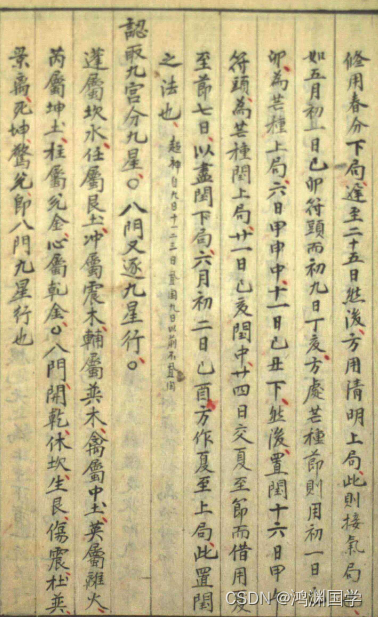 修用春分下局遲至二十五日然後方用清明上局此則接氣局
如五月初一日己卯符頭而初九日丁亥方處芒種節則用初一日
卯為芒種上局六日甲申中十一日己丑下然後置閏十六日甲
符頭為芒種閏上局廿一日己亥閏中廿四日交夏至節而借用
至節七日以盡閏下局六月初二日己酉方作夏至上局此置閏
之法也超神自九日十一二三日置閏九日以前不置閏
認取九宮分九星○八門又逐九星行○
蓬屬坎水任屬艮土冲屬震木輔屬巽木禽屬中土英屬離火
芮屬坤土柱屬兌金心屬乾金○八門開乾休坎生艮傷震杜巽
景离死坤驚兌即八門九星行也
CSDN @鸿渊国学